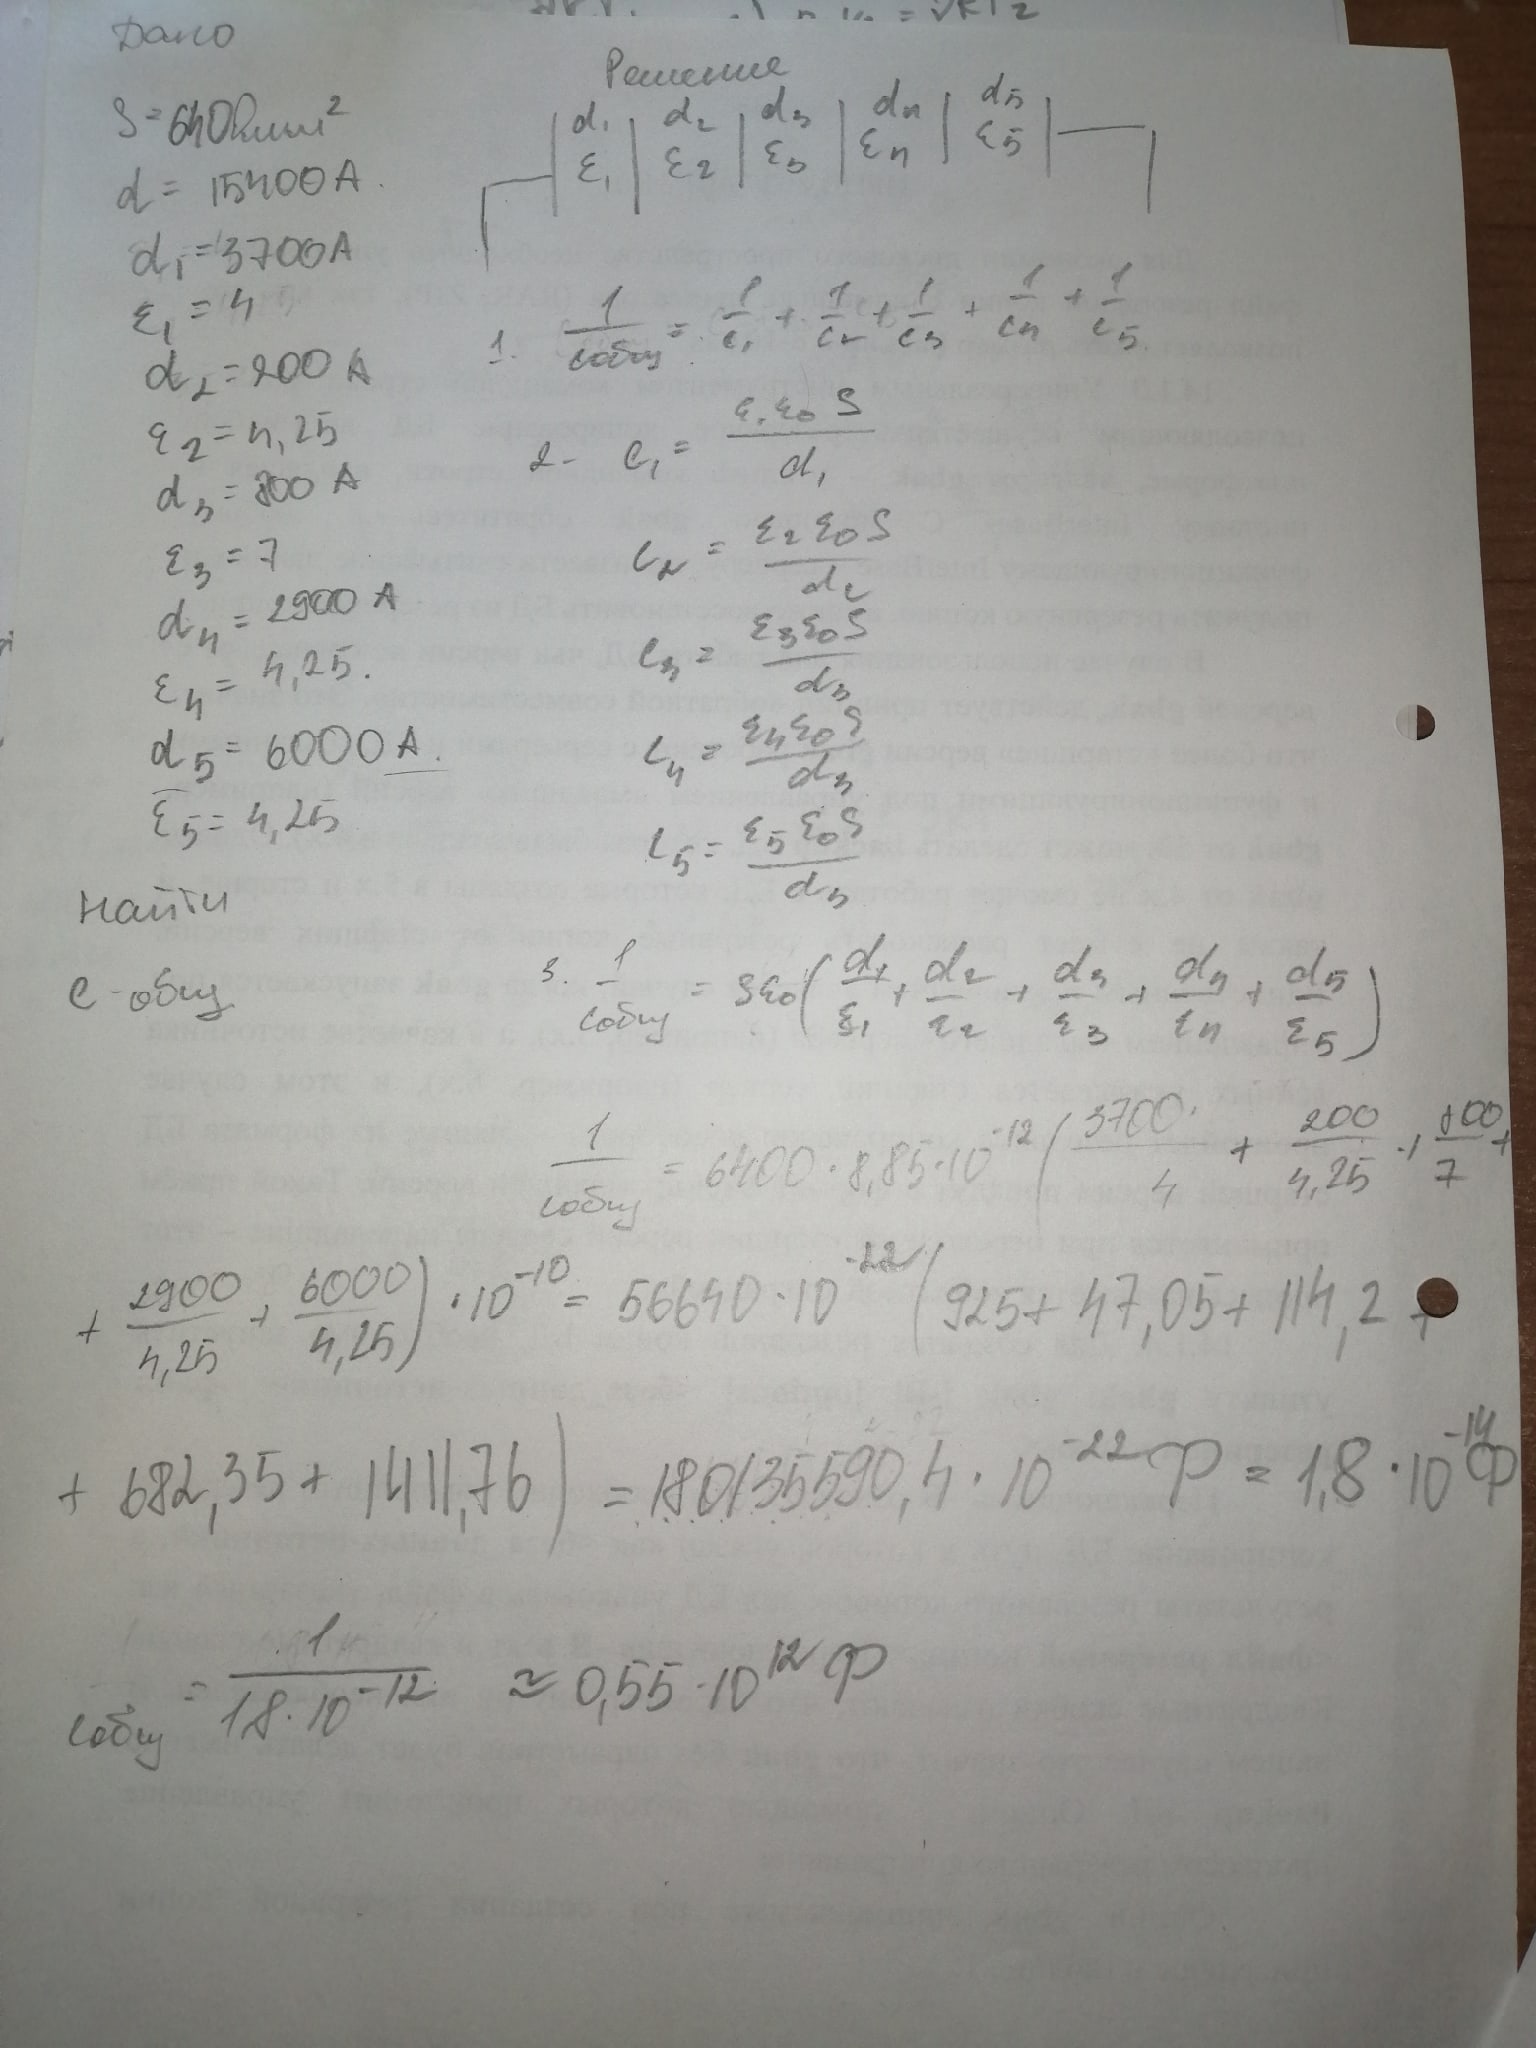 Дано
S = 6400 мм²
d = 15400 A.
d₁ = 3700 A
ε₁ = 4
d₂ = 200 A
ε₂ = 4,25
d₃ = 800 A
ε₃ = 7
d₄ = 2900 A
ε₄ = 4,25.
d₅ = 6000 A.
ε₅ = 4,25
Найти
C-общ
Решение
d₁ d₂ d₃ d₄ d₅
ε₁ ε₂ ε₃ ε₄ ε₅
1. 1/Cобщ = 1/C₁ + 1/C₂ + 1/C₃ + 1/C₄ + 1/C₅.
2- C₁ = ε₁ε₀S/d₁
C₂ = ε₂ε₀S/d₂
C₃ = ε₃ε₀S/d₃
C₄ = ε₄ε₀S/d₄
C₅ = ε₅ε₀S/d₅
3. 1/Cобщ = Sε₀(d₁/ε₁ + d₂/ε₂ + d₃/ε₃ + d₄/ε₄ + d₅/ε₅)
1/Cобщ = 6400·8,85·10⁻¹² (3700/4 + 200/4,25 + 800/7 +
+ 2900/4,25 + 6000/4,25)·10⁻¹⁰ = 56640·10⁻²² (925 + 47,05 + 114,2 +
+ 682,35 + 1411,76) = 180135590,4·10⁻²² Ф = 1,8·10⁻¹⁴ Ф
Cобщ = 1/18·10⁻¹² ≈ 0,55·10¹² Ф